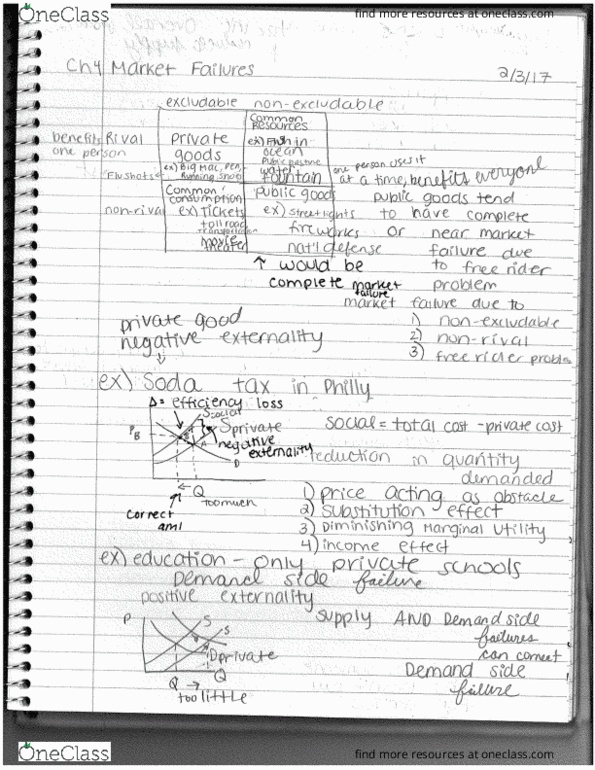 OneClass
find more resources at oneclass.com
Ch4 Market Failures
2/3/17
excludable non-excludable
Common Resources
benefits one person
Rival
private goods
ex) Big Mac, pen, running shoe
ex) Fish in ocean
water fountain
one person uses it at a time, benefits everyone
Flu shots
non-rival
Common consumption
ex) Tickets
toll road
transportation
movie theater
public goods
ex) streetlights
fireworks
nat'l defense
public goods tend
to have complete
or near market
failure due
to free rider
problem
↑ would be
complete market failure
market failure due to
1) non-excludable
2) non-rival
3) free rider problem
private good
negative externality
↓
ex) Soda tax in Philly
Δ = efficiency loss
Ssocial
Sprivate
negative externality
PB
A
D
← Q
too much
correct amt
social = total cost - private cost
reduction in quantity
demanded
1) price acting as obstacle
2) substitution effect
3) Diminishing Marginal Utility
4) income effect
ex) education - only private schools
Demand side failure
positive externality
P
S
S
Dprivate
Q
Q →
too little
supply AND Demand side
failures
can correct
Demand side
failure
OneClass
find more resources at oneclass.com